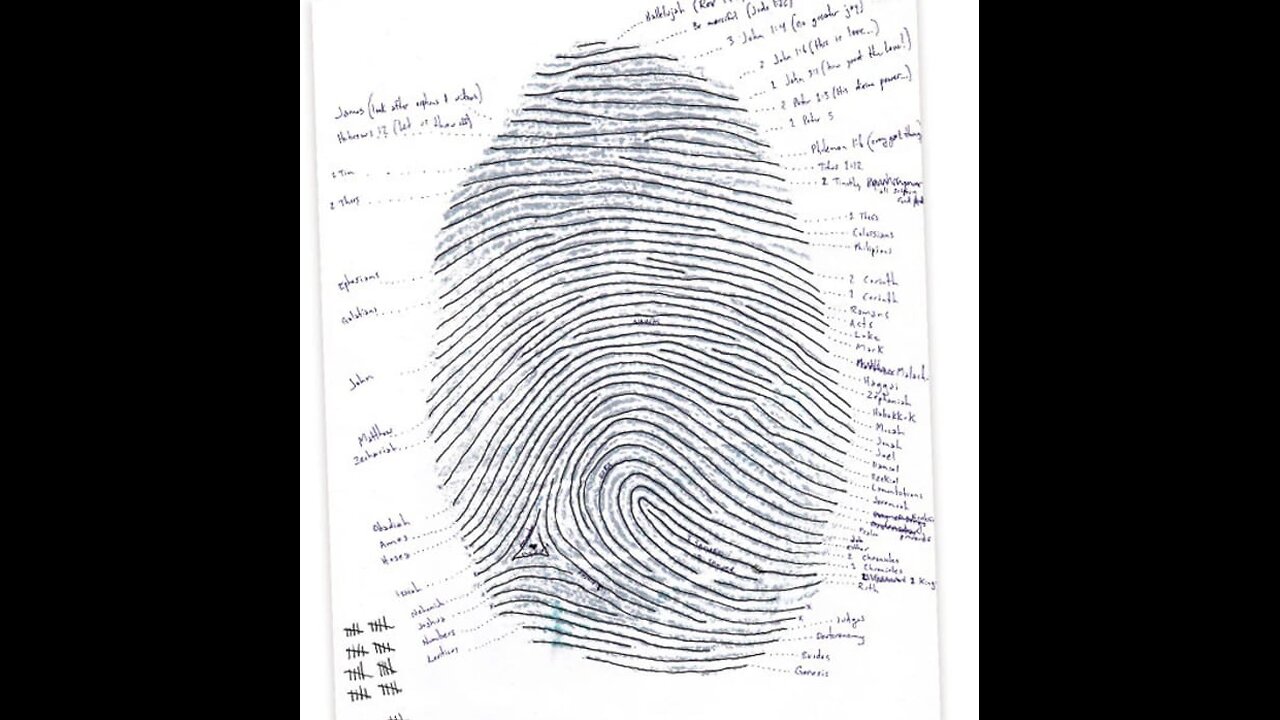 Hallelujah (Rev
Be merciful (Jude 1:22)
3 John 1:4 (no greater joy)
2 John 1:6 (this is love...)
1 John 3:1 (how great the love!)
2 Peter 1:3 (His divine power...)
1 Peter 5
James (look after orphans & widows)
Hebrews 12 (Let us throw off)
Philemon 1:6 (every good thing
Titus 2:12
1 Tim
2 Timothy
2 Thess
1 Thess
Colossians
Philipians
Ephesians
2 Corinth
1 Corinth
Galatians
Romans
Acts
Luke
Mark
Malach
John
Haggai
Zephaniah
Habakk-k
Micah
Matthew
Jonah
Zechariah
Joel
Daniel
Ezekiel
Lamentations
Jeremiah
Obadiah
Amos
Hosea
Psalm
Proverbs
Job
esther
2 Chronicles
1 Chronicles
1 King
Ruth
Isaiah
Nehemiah
Joshua
Numbers
Leviticus
Judges
Deuteronomy
Exodus
Genesis